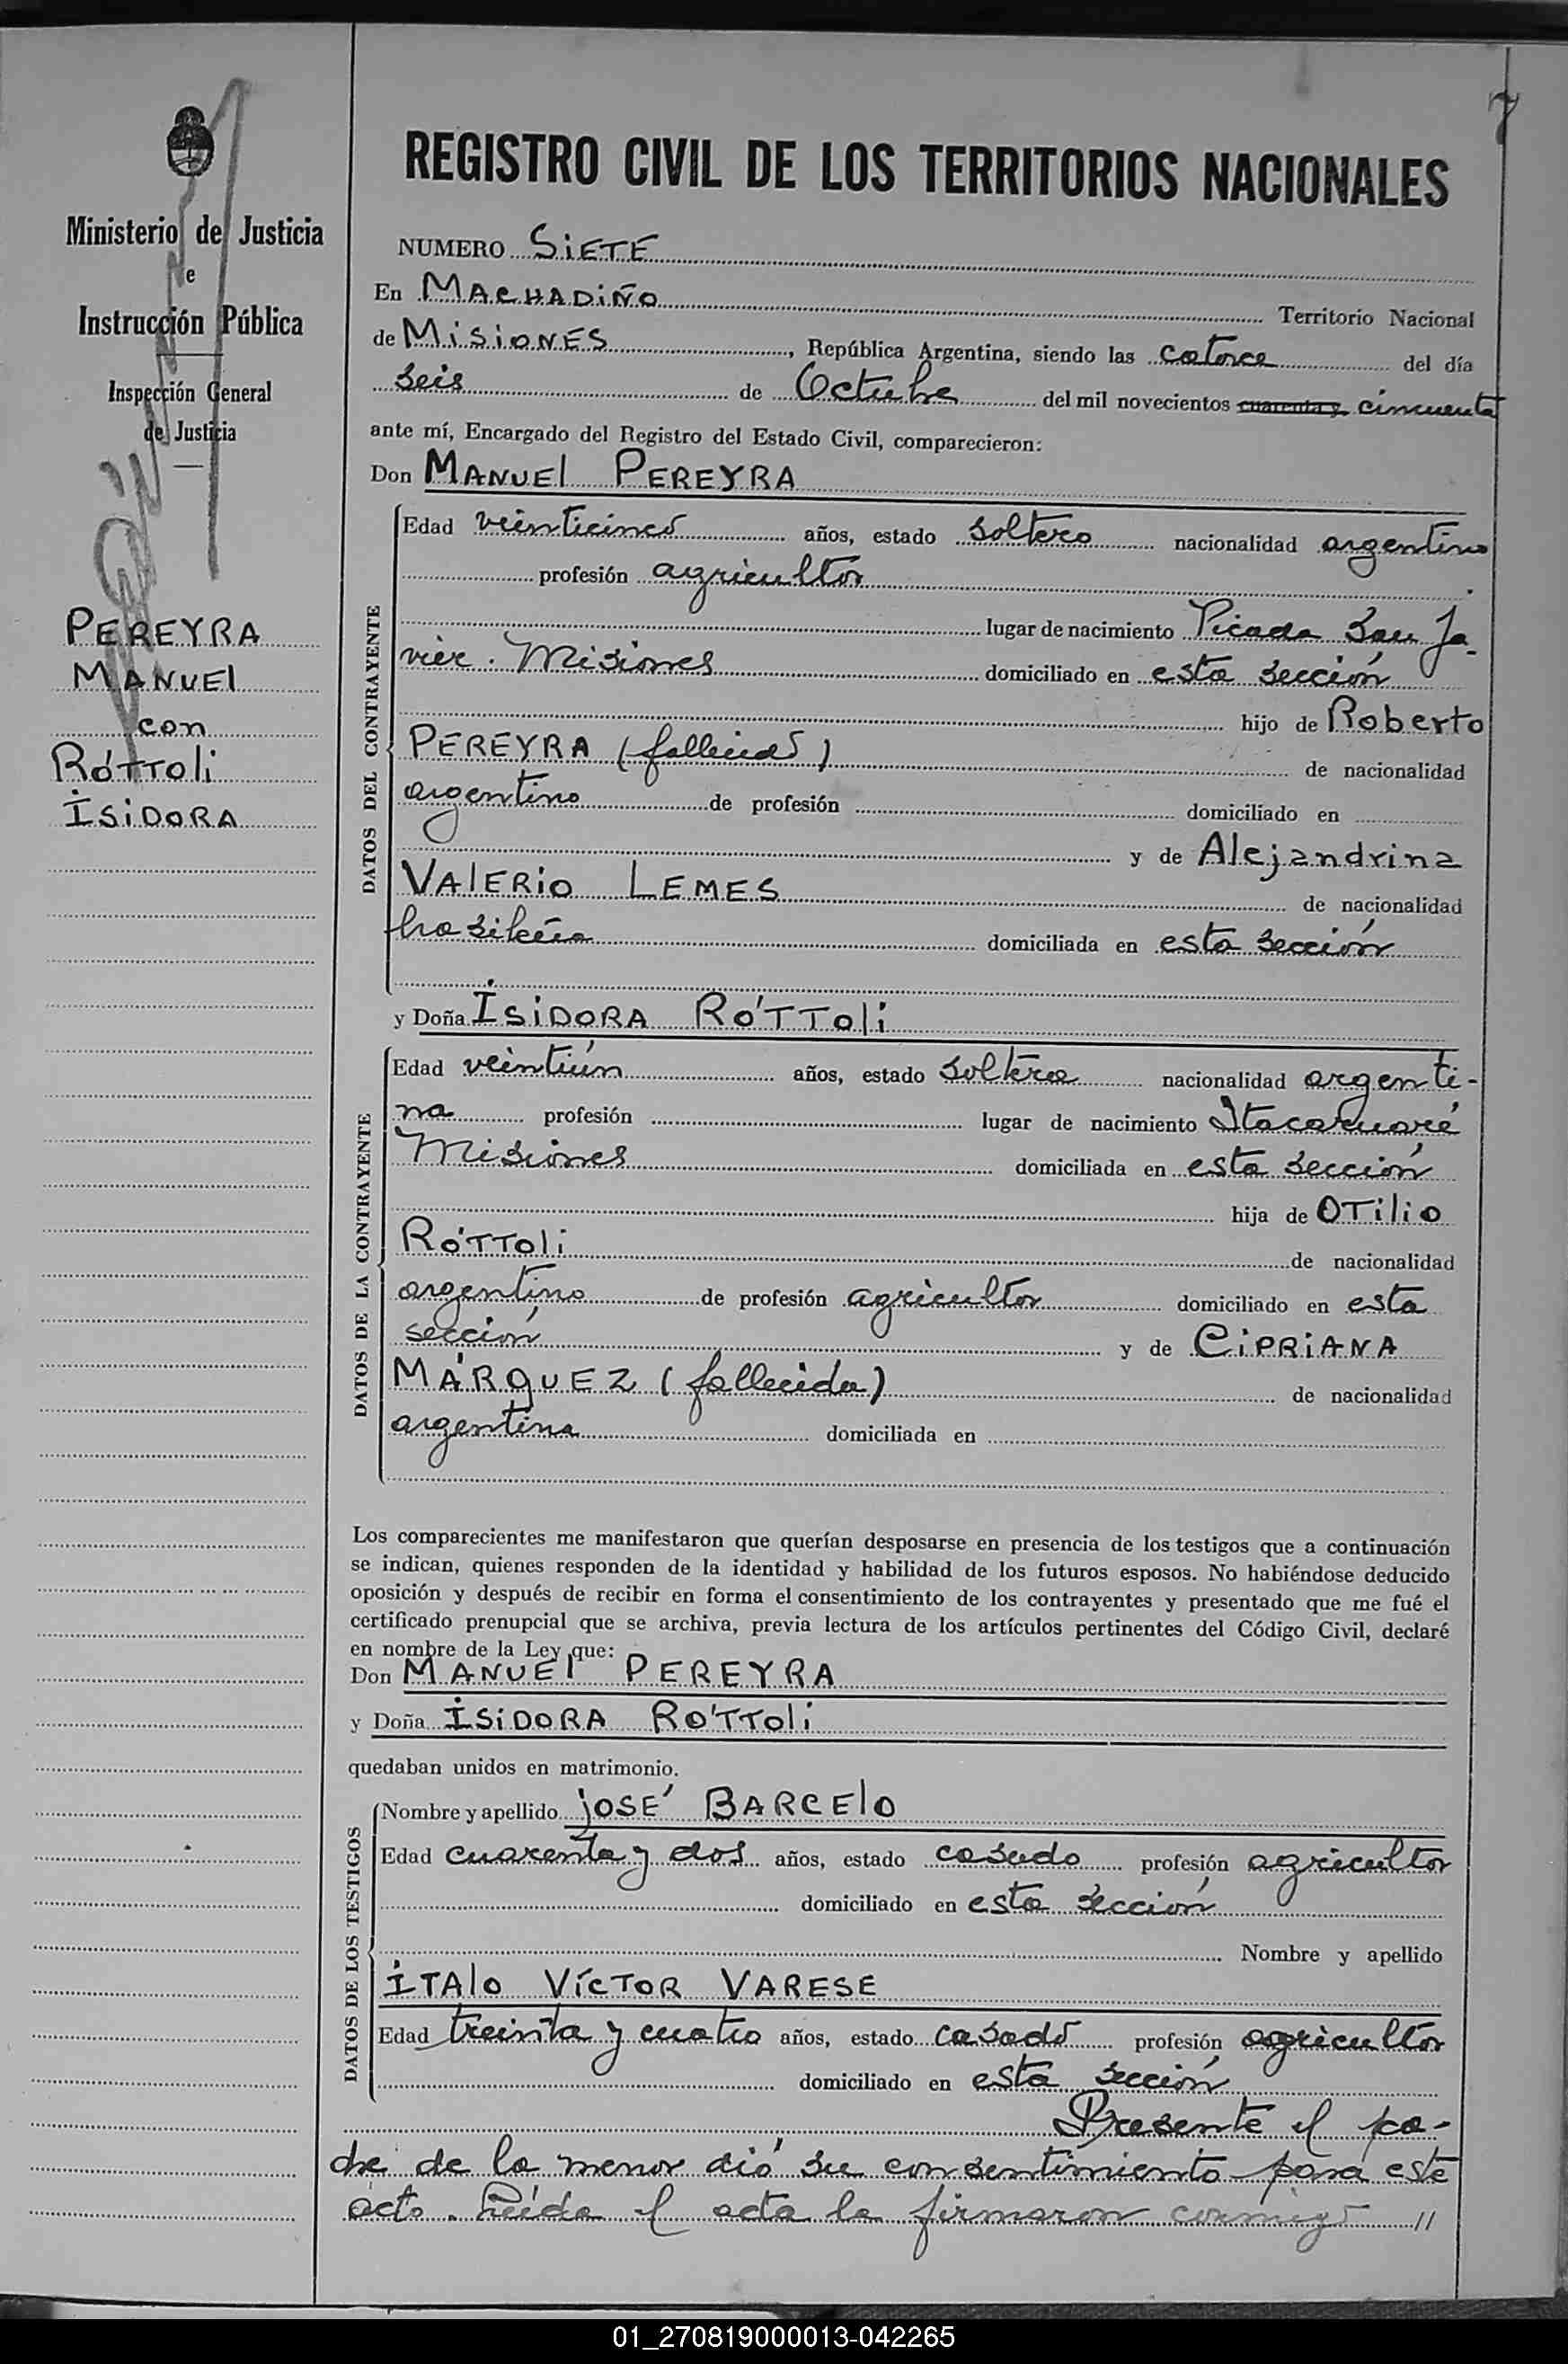 7
Ministerio de Justicia
e
Instrucción Pública
Inspección General
de Justicia
PEREYRA
MANUEL
con
RÓTTOLI
ISIDORA
REGISTRO CIVIL DE LOS TERRITORIOS NACIONALES
NUMERO SIETE
En MACHADIÑO Territorio Nacional
de MISIONES, República Argentina, siendo las catorce del día
seis de Octubre del mil novecientos cuarenta y cincuenta
ante mí, Encargado del Registro del Estado Civil, comparecieron:
Don MANUEL PEREYRA
DATOS DEL CONTRAYENTE
Edad veinticinco años, estado soltero nacionalidad argentino
profesión agricultor
lugar de nacimiento Picada San Ja-
vier. Misiones domiciliado en esta sección
hijo de Roberto
PEREYRA (fallecido) de nacionalidad
argentino de profesión domiciliado en
y de Alejandrina
VALERIO LEMES de nacionalidad
brasileña domiciliada en esta sección
y Doña ISIDORA RÓTTOLI
DATOS DE LA CONTRAYENTE
Edad veintiún años, estado soltera nacionalidad argenti-
na profesión lugar de nacimiento Itacaruaré
Misiones domiciliada en esta sección
hija de OTILIO
RÓTTOLI de nacionalidad
argentino de profesión agricultor domiciliado en esta
sección y de CIPRIANA
MÁRQUEZ (fallecida) de nacionalidad
argentina domiciliada en
Los comparecientes me manifestaron que querían desposarse en presencia de los testigos que a continuación
se indican, quienes responden de la identidad y habilidad de los futuros esposos. No habiéndose deducido
oposición y después de recibir en forma el consentimiento de los contrayentes y presentado que me fué el
certificado prenupcial que se archiva, previa lectura de los artículos pertinentes del Código Civil, declaré
en nombre de la Ley que:
Don MANUEL PEREYRA
y Doña ISIDORA RÓTTOLI
quedaban unidos en matrimonio.
DATOS DE LOS TESTIGOS
Nombre y apellido JOSÉ BARCELO
Edad cuarenta y dos años, estado casado profesión agricultor
domiciliado en esta sección
Nombre y apellido
ITALO VÍCTOR VARESE
Edad treinta y cuatro años, estado casado profesión agricultor
domiciliado en esta sección
Presente el pa-
dre de la menor dió su consentimiento para este
acto. Leída el acta la firmaron conmigo //
01_270819000013-042265